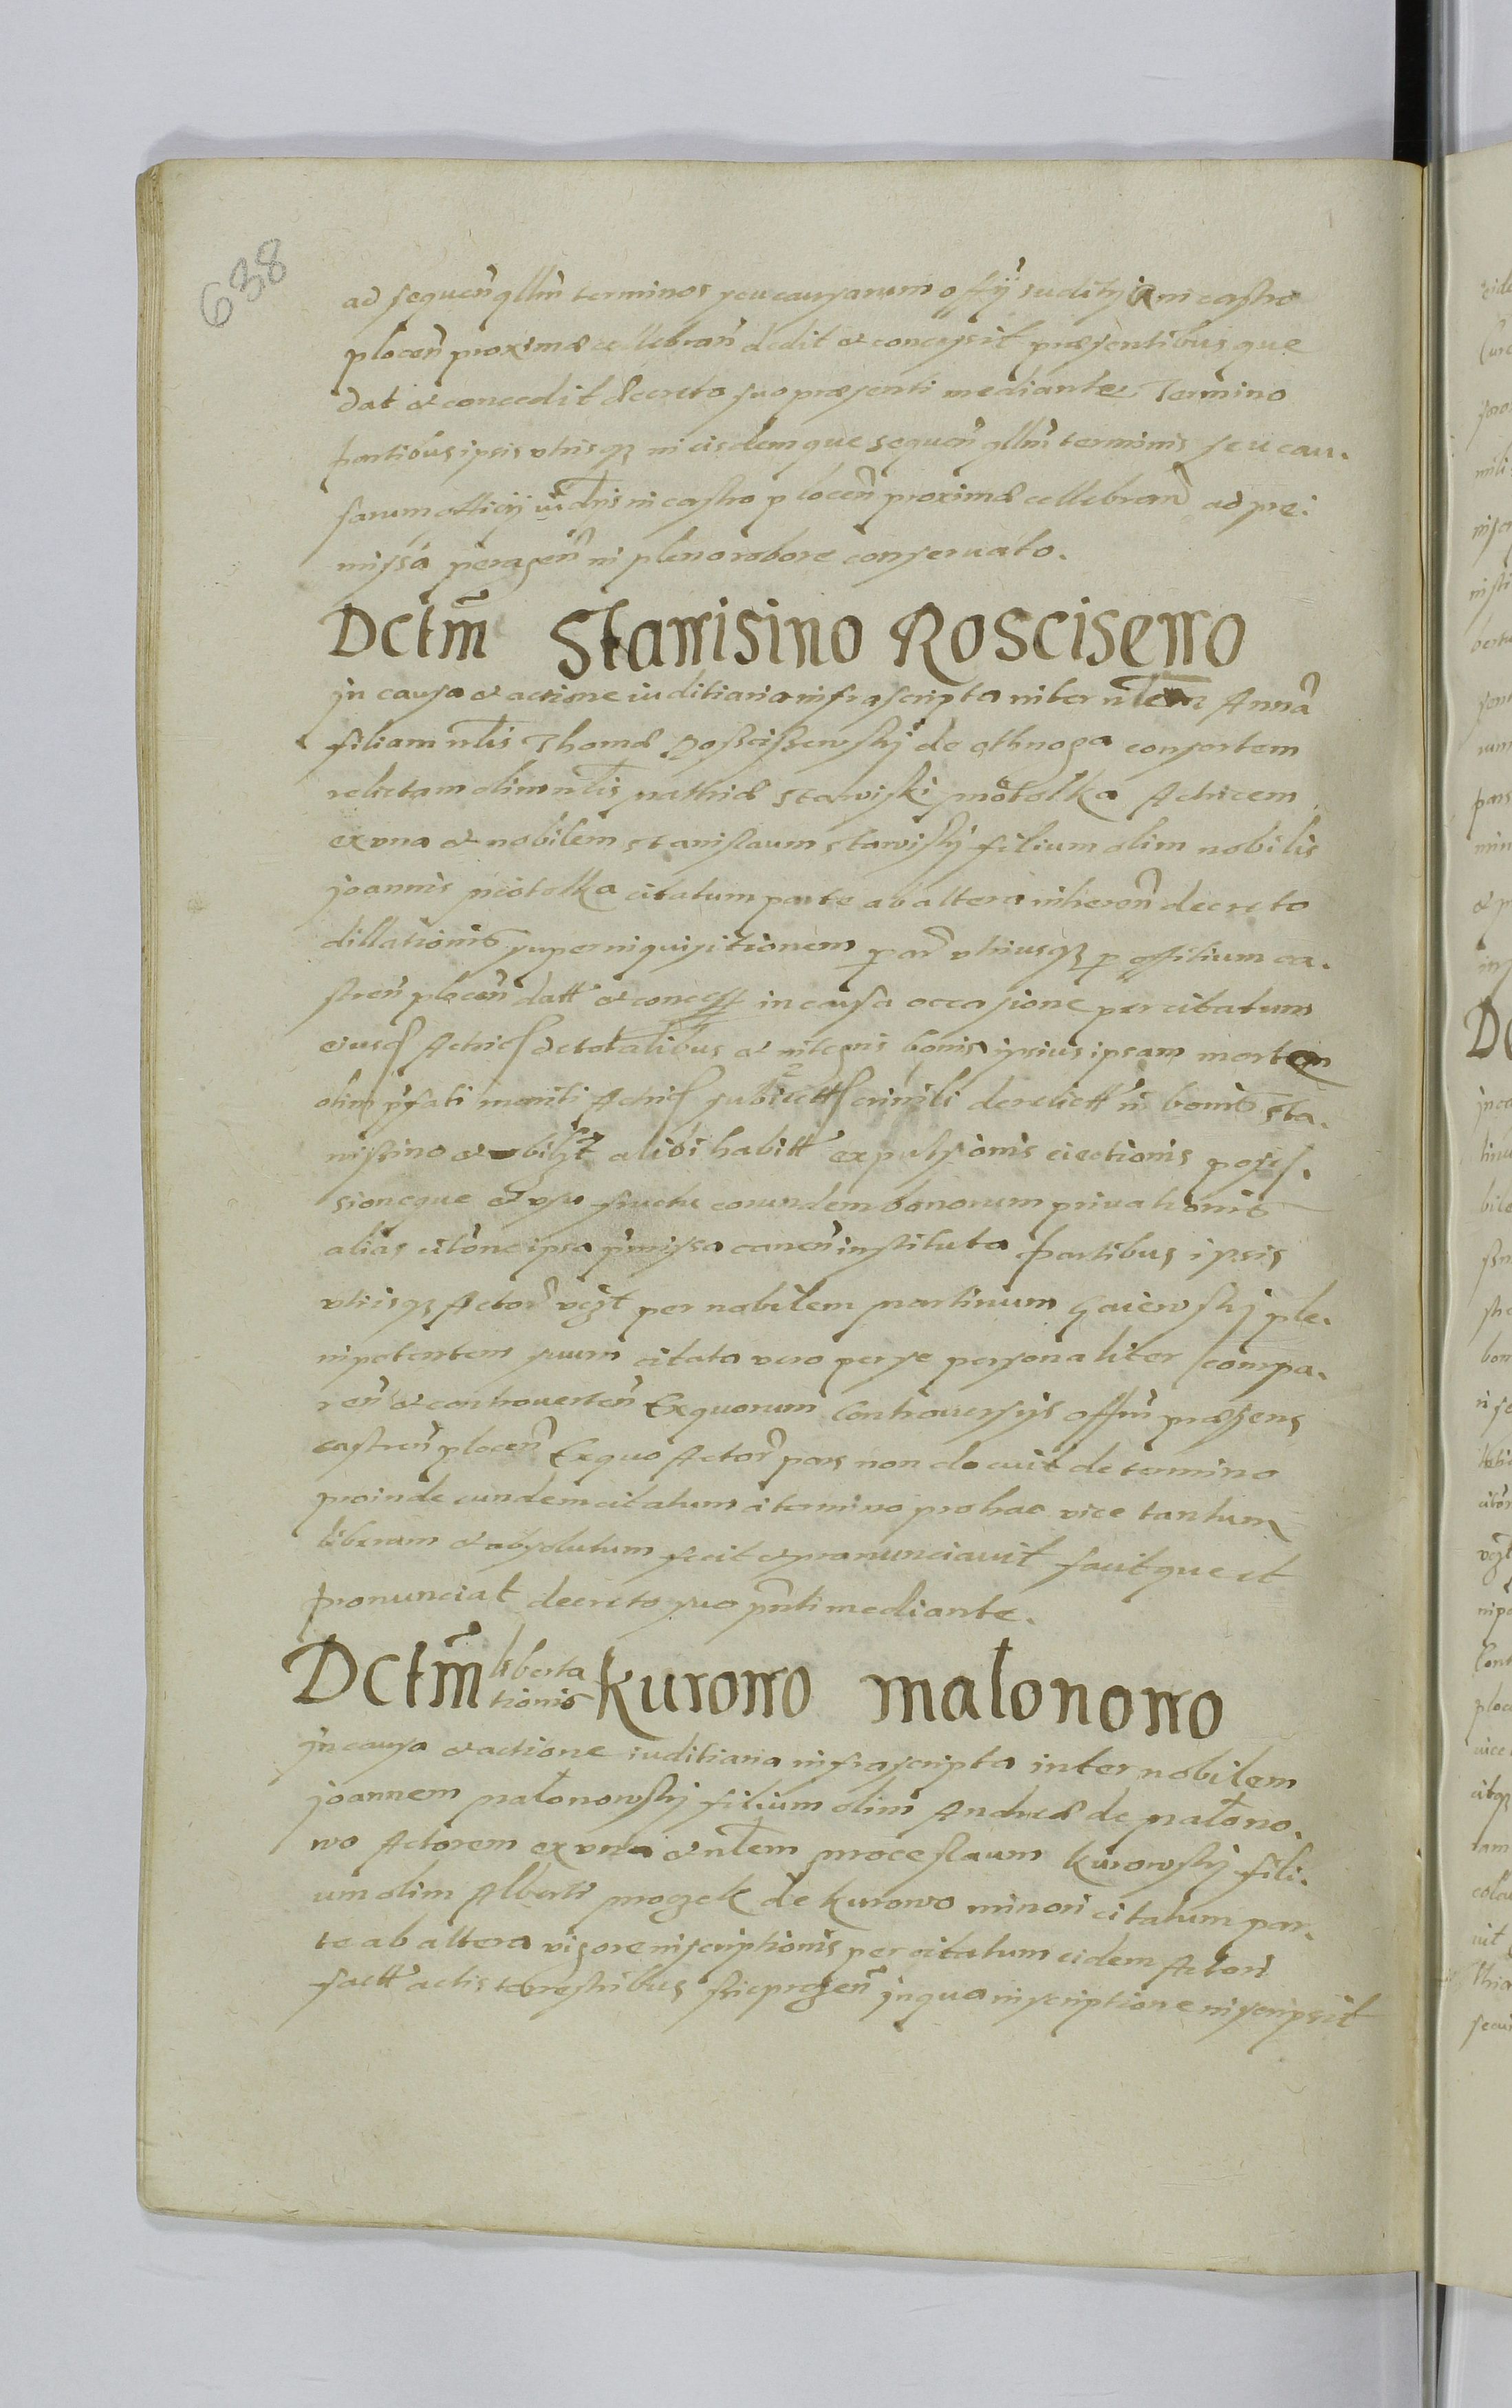 638
ad sequen̄ qllm̄ terminos seu causarum offÿ iuditÿ in castro
plocen̄ proxime cellebran̄ dedit et concessit præsentibusque
dat et concedit decreto suo præsenti mediante Termino
partibus ipsis utrisqȝ in eisdemque sequen̄ qllm̄ terminis seu cau-
sarum officij iudris in castro plocen̄ proxime cellebran̄ ad pre-
missa peragen̄ in pleno robore conseruato.
Dctm̄ Stawisino Roscisewo
jn causa et actione iuditiaria infrascripta inter nlem Annā
filiam nlis Thome Rosciszewskj de gthnoga consortem
relictam olim nlis mathie stawiski piotolka Actricem
ex vna et nobilem stanislaum stawiskj filium olim nobilis
joannis piotolka citatum parte ab altera inheren̄ decreto
dillationis super inquisitionem par̄ utriusqȝ p offitium ca-
stren̄ plocen̄ datt et concess in causa occasione per citatum
eiusd Actric de totalibus et integris bonis ipsius ipsam mortem
olim p̄fati mariti Actric subiectt derelictt in bonis sta-
wisino et vbilȝt alibi habitt expulsionis eiectionis posses-
sioneque et vsu fructu eorundem bonorum priuationis
alias citōne ipsa p̄missa canen̄ instituta partibus ipsis
vtrisqȝ Actor̄ vcȝt per nobilem martinum Gaiewskj ple-
nipotentem suum citata vero per se personaliter compa-
ren̄ et controuerten̄ Ex quorum Controuersijs offm̄ præsens
castren̄ plocen̄ Ex quo Actor̄ pars non docuit de termino
proinde eundem citatum a termino pro hac vice tantum
liberum et absolutum fecit et pronunciauit facitque et
pronunciat decreto suo pn̄ti mediante.
Dctm̄ liberta
tionis Kurowo malonowo
jn causa et actione iuditiaria infrascripta inter nobilem
joannem malonowskj filium olim Andree de malono-
wo Actorem ex vna et nlem proceslaum Kurowskj fili-
um olim Alberti mroczek de Kurowo minori citatum par-
te ab altera vigore inscriptionis per citatum eidem Actori
factt actis terrestribus sieprczen̄ jn qua inscriptione inscripsit